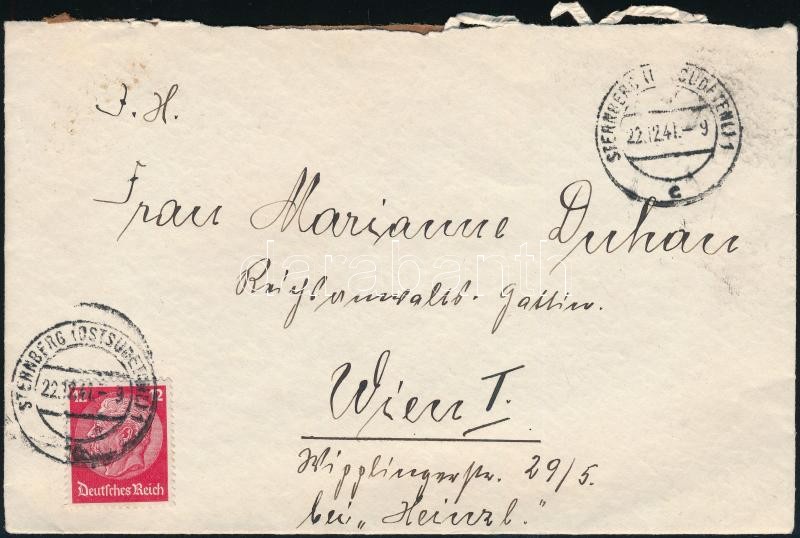 STERNBERG (  SUDETENL) 1
22.12.41.- 9
c
I. H.
Frau Marianne Duhan
Reichsanwalts-Gattin.
darabanth
Wien I.
Wipplingerstr. 29/5.
bei "Heinzl."
STERNBERG (OSTSUDETENL) 1
22.12.41.- 9
12 12
Deutsches Reich